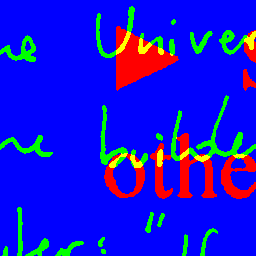 he Univer
he builde
othe
ter: "If